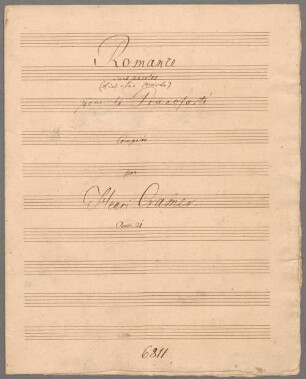 Romance
sans paroles
pour le Pianoforte
Composée
par
Henri Cramer
Oeuv. 21
6311